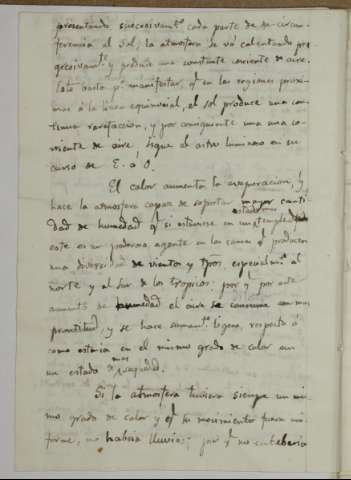 presentando succesivamte cada parte de su circun-
ferencia al Sol, la atmosfera se vá calentando pro-
gresivamte y produce una constante coriente de aire.
Esto basta pa manifestar, qe en las regiones proxi-
mas á la linea equinoxial, el sol produce una con-
tinua rarefaccion, y por consiguiente una co-
rriente de aire sigue el astro luminoso en su
curso de E. á O.
El calor aumenta la evaporacion, y
hace la atmosfera capaz de soportar mayor canti-
dad de humedad qe si estuviese en un estado templado
este es un poderoso agente en las causas qe producen
una diversidad de vientos y tpos, especialmte al
norte y al sur de los tropicos: por qe por este
aumento de humedad el aire se con mas
prontitud, y se hace sumamte ligero, respecto á
como estaria en el mismo grado de calor en
un estado mas sequedad.
Si la atmosfera tuviera siempre un mis-
mo grado de calor y qe su movimiento fuera uni-
forme, no habria lluvias; por qe no